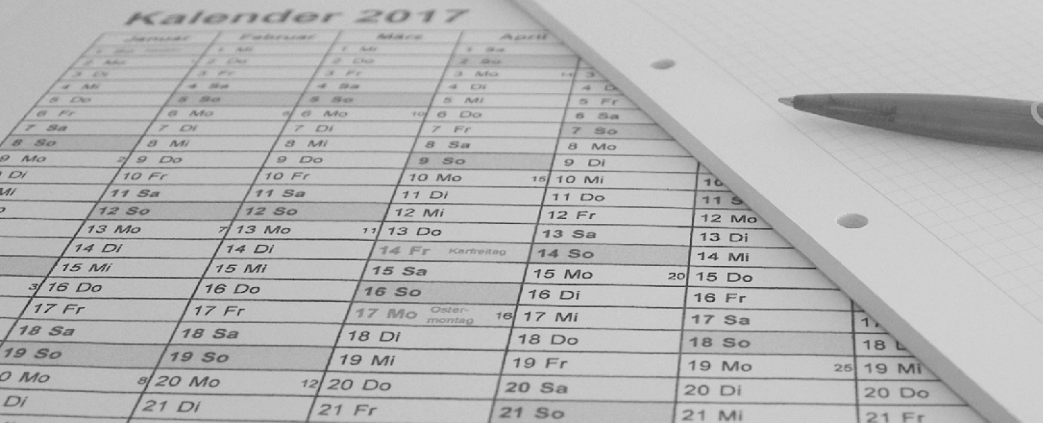 Kalender 2017
Januar Februar März April
1 So 1 Mi 1 Mi 1 Sa
2 Mo 2 Do 2 Do 2 So
3 Di 3 Fr 3 Fr 3 Mo 14 3
4 Mi 4 Sa 4 Sa 4 Di 4 D
5 Do 5 So 5 So 5 Mi 5 Fr
6 Fr 6 Mo 6 Mo 10 6 Do 6 Sa
7 Sa 7 Di 7 Di 7 Fr 7 So
8 So 8 Mi 8 Mi 8 Sa 8 Mo
9 Mo 2 9 Do 9 Do 9 So 9 Di
Di 10 Fr 10 Fr 10 Mo 15 10 Mi 10
Mi 11 Sa 11 Sa 11 Di 11 Do 11 S
12 So 12 So 12 Mi 12 Fr 12 Mo
13 Mo 7 13 Mo 11 13 Do 13 Sa 13 Di
14 Di 14 Di 14 Fr Karfreitag 14 So 14 Mi
15 Mi 15 Mi 15 Sa 15 Mo 20 15 Do
3 16 Do 16 Do 16 So 16 Di 16 Fr
17 Fr 17 Fr 17 Mo Oster-montag 16 17 Mi 17 Sa 17
18 Sa 18 Sa 18 Di 18 Do 18 So 18
19 So 19 So 19 Mi 19 Fr 19 Mo 25 19 Mi
0 Mo 8 20 Mo 12 20 Do 20 Sa 20 Di 20 Do
Di 21 Di 21 Fr 21 So 21 Mi 21 Fr